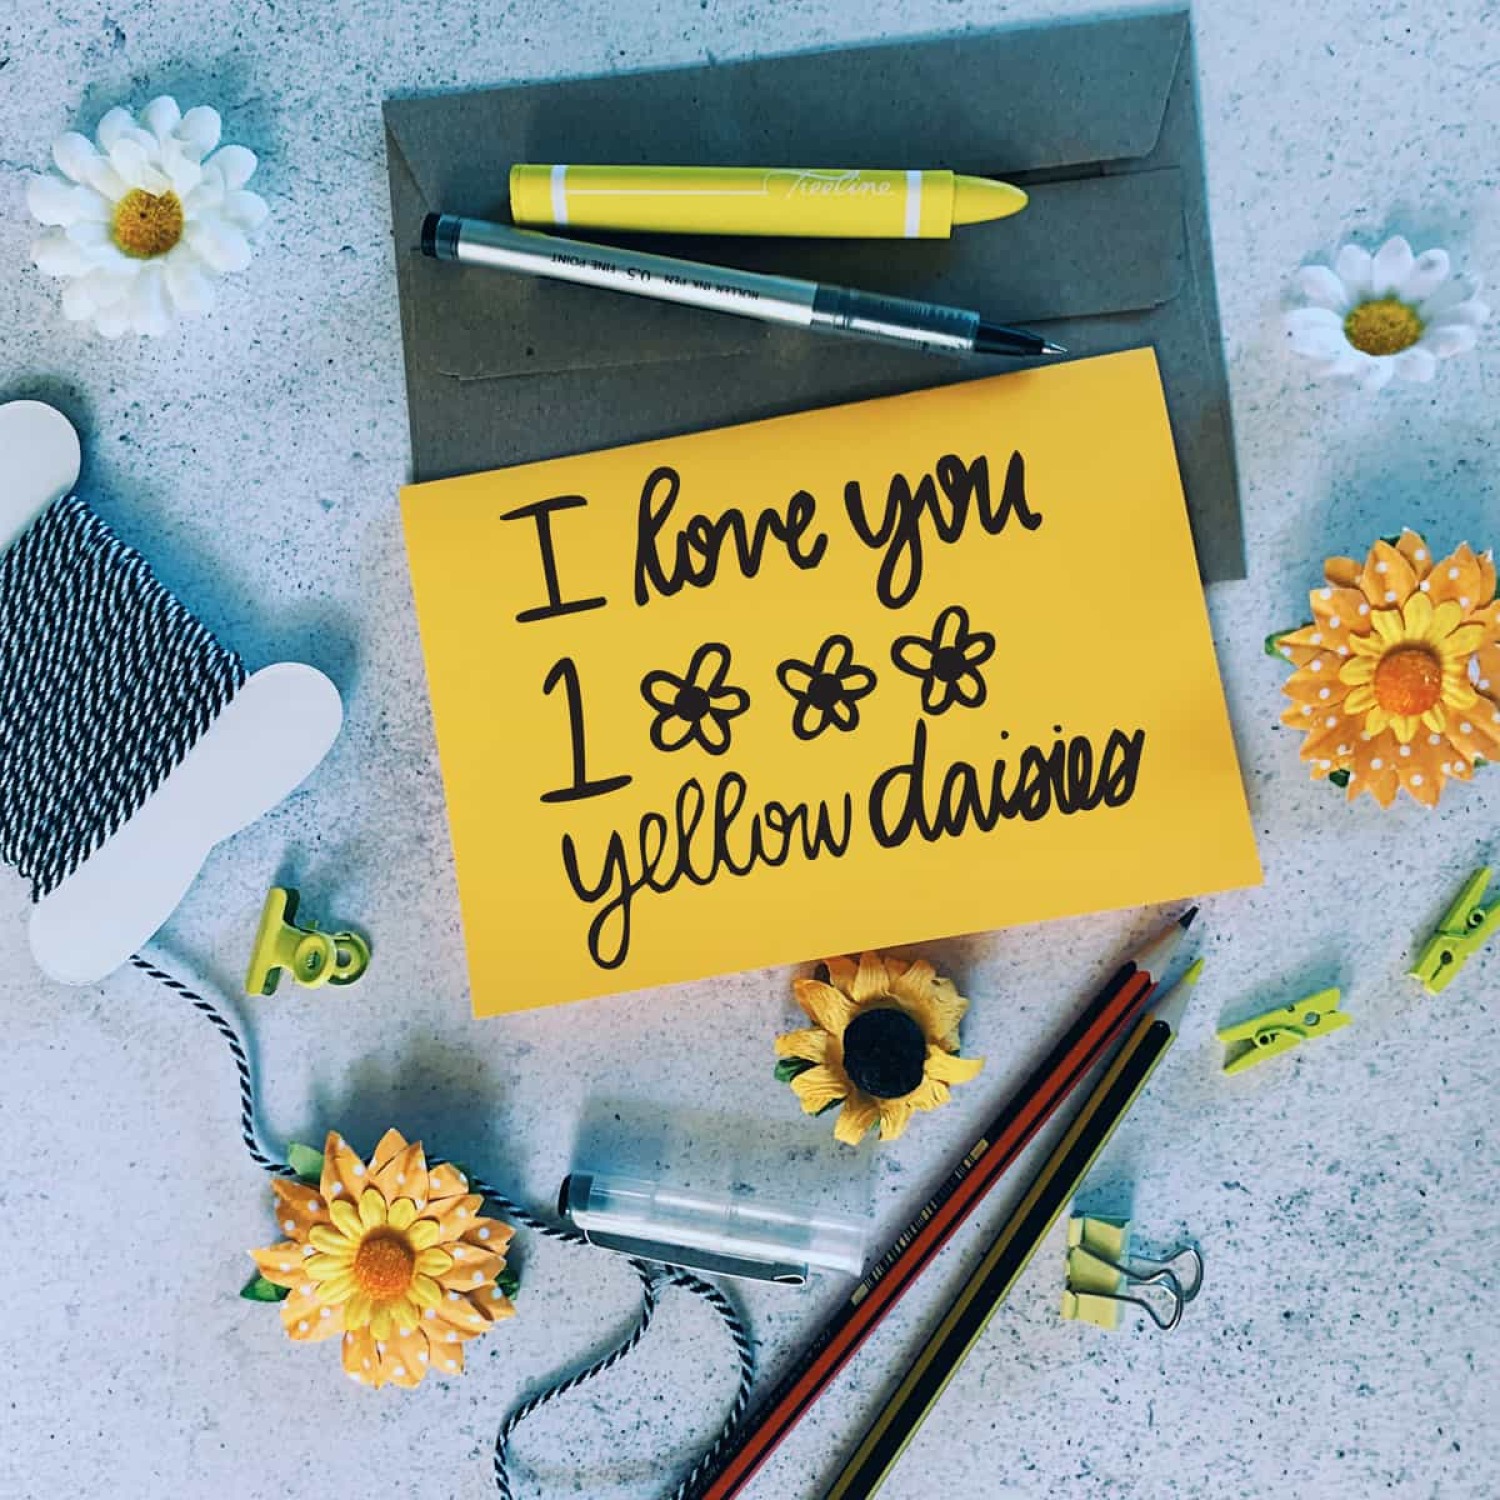 Treeline
ROLLER INK PEN 0.5 FINE POINT
I love you
1
yellow daisies